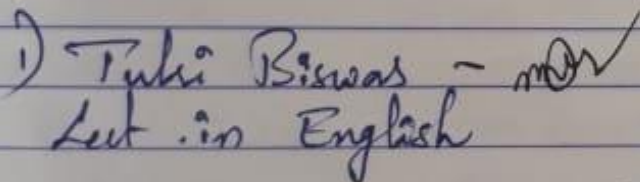 1) Tulsi Biswas -
Lect. in English